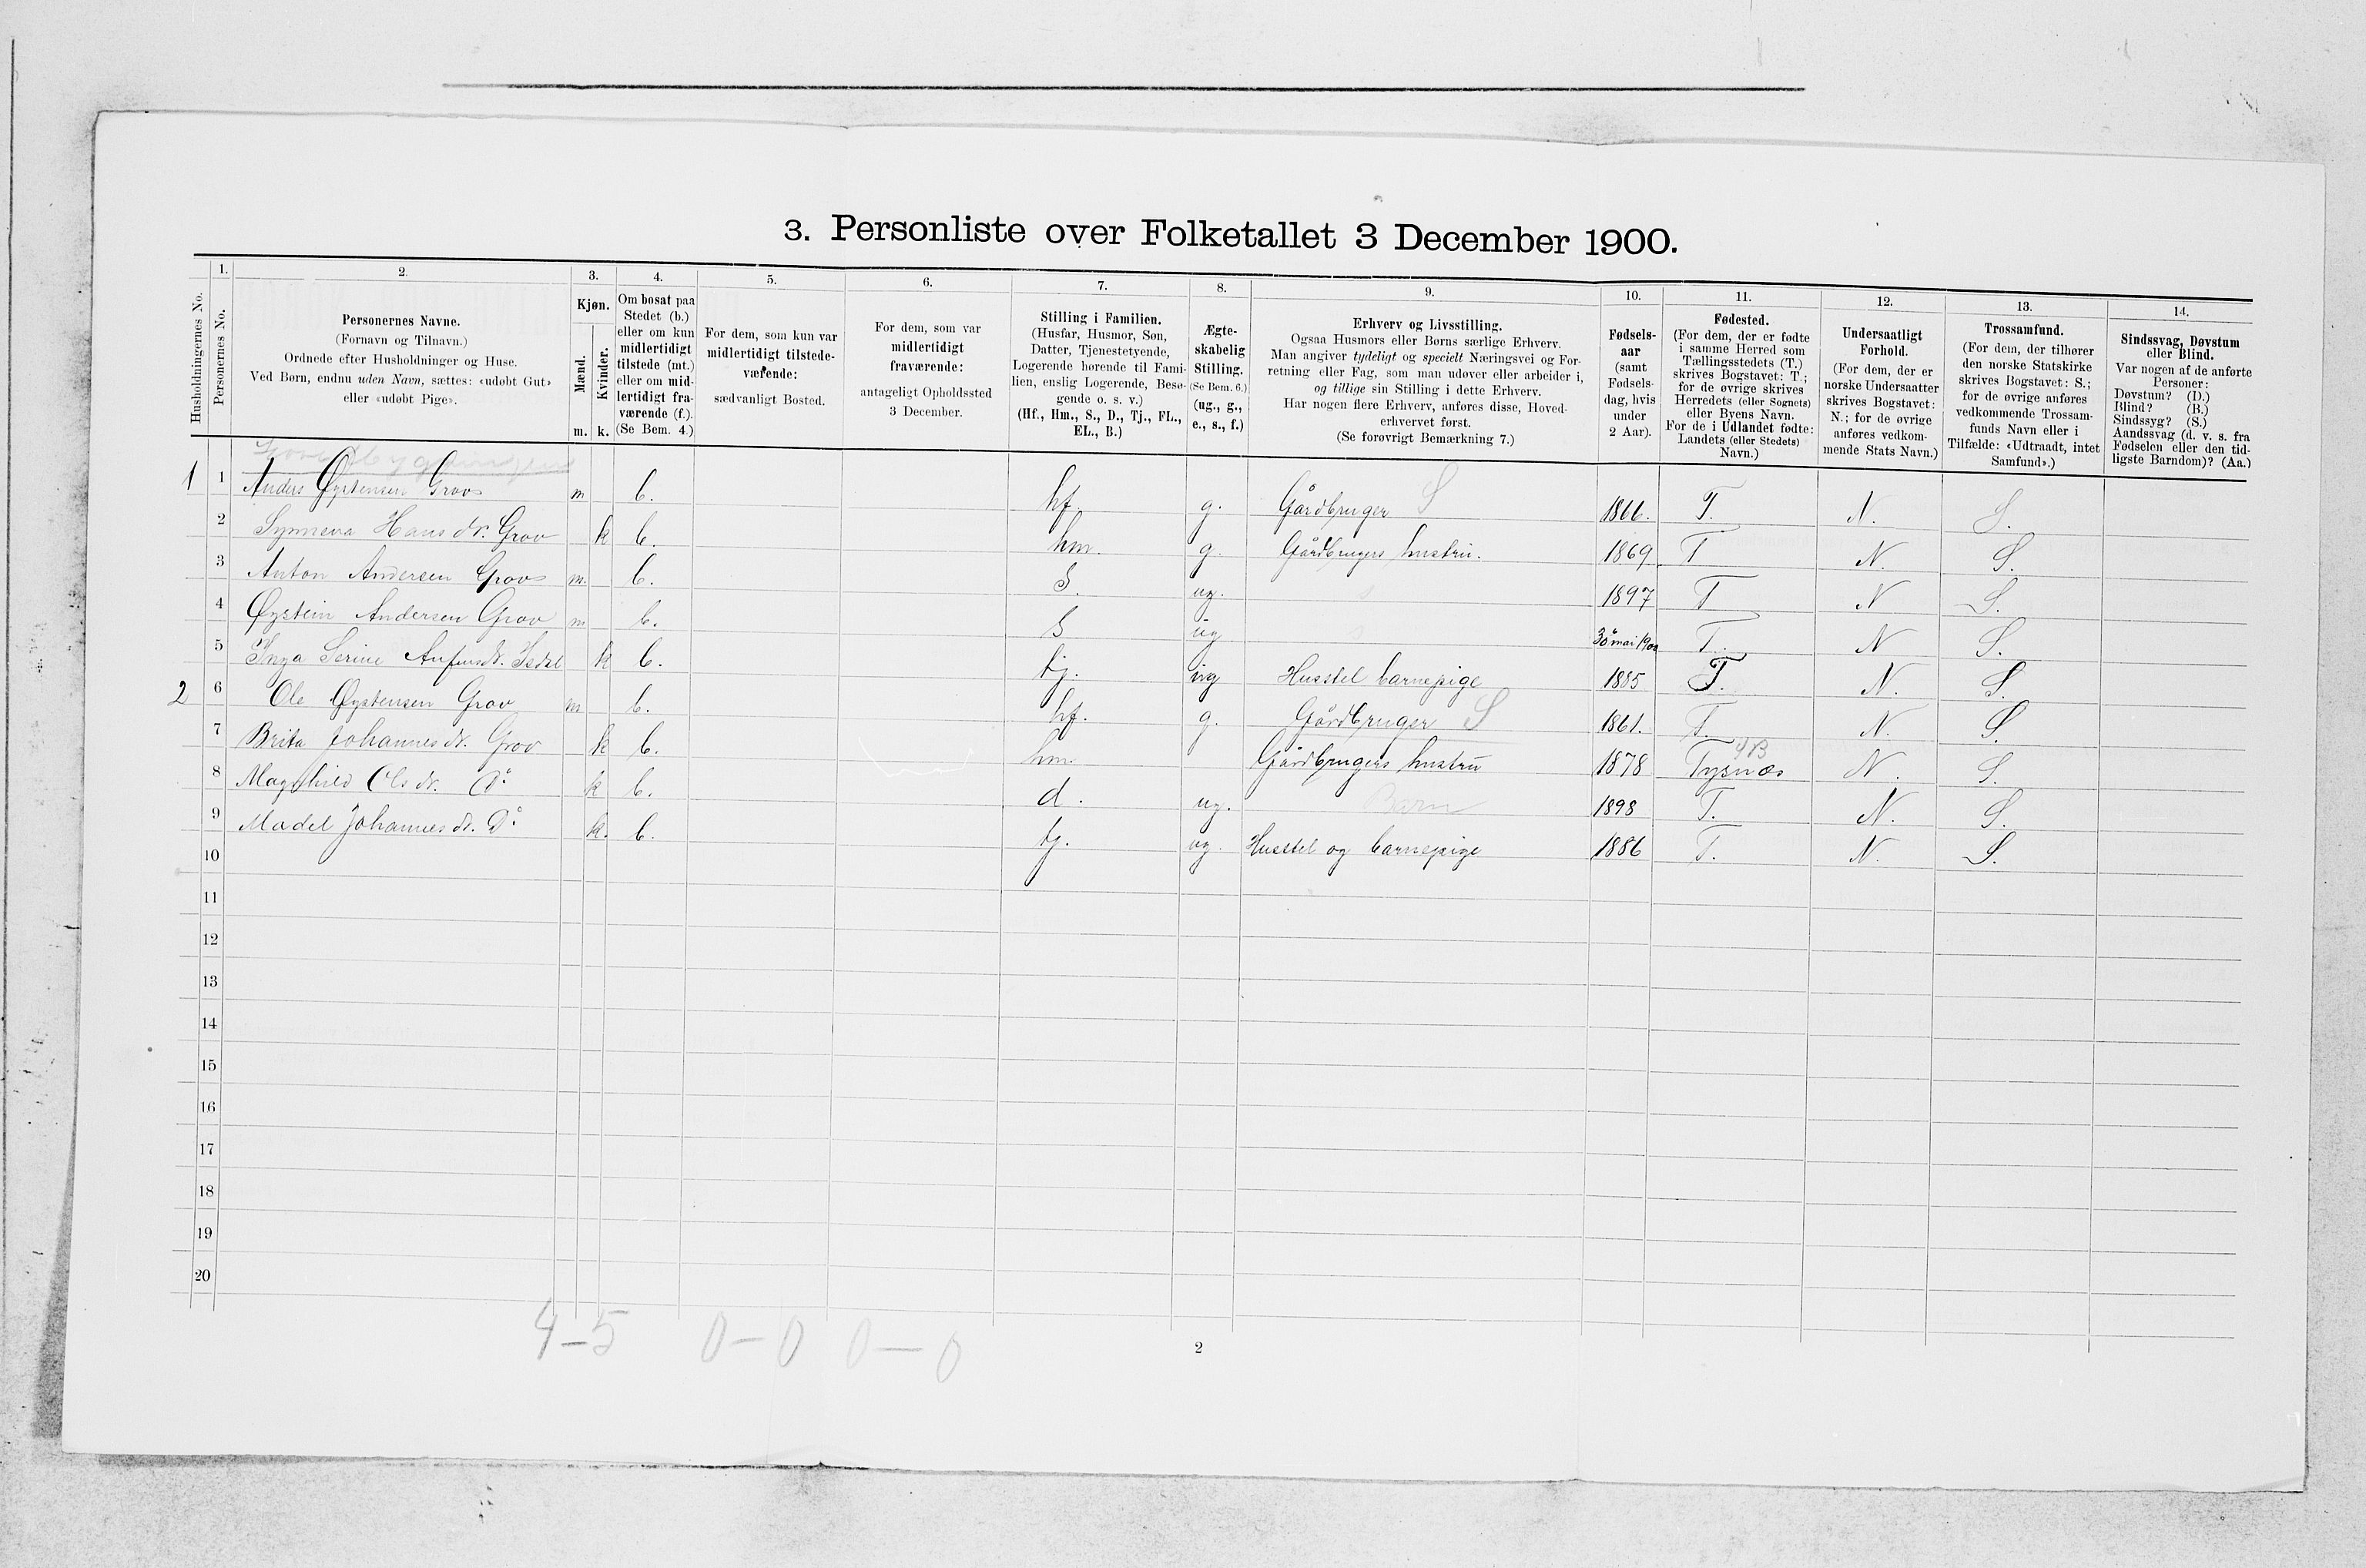 3. Personliste over Folketallet 3 December 1900.
1. 2. 3. 4. 5. 6. 7. 8. 9. 10. 11. 12. 13. 14.
Husholdningernes No.
Personernes No.
Personernes Navne.
(Fornavn og Tilnavn.)
Ordnede efter Husholdninger og Huse.
Ved Børn, endnu uden Navn, sættes: «udøbt Gut»
eller «udøbt Pige».
Kjøn.
Mænd.
Kvinder.
m. k.
Om bosat paa
Stedet (b.)
eller om kun
midlertidigt
tilstede (mt.)
eller om mid-
lertidigt fra-
værende (f.).
(Se Bem. 4.)
For dem, som kun var
midlertidigt tilstede-
værende:
sædvanligt Bosted.
For dem, som var
midlertidigt
fraværende:
antageligt Opholdssted
3 December.
Stilling i Familien.
(Husfar, Husmor, Søn,
Datter, Tjenestetyende,
Logerende hørende til Fami-
lien, enslig Logerende, Besø-
gende o. s. v.)
(Hf., Hm., S., D., Tj., FL.,
EL., B.)
Ægte-
skabelig
Stilling.
(Se Bem. 6.)
(ug., g.,
e., s., f.)
Erhverv og Livsstilling.
Ogsaa Husmors eller Børns særlige Erhverv.
Man angiver tydeligt og specielt Næringsvei og For-
retning eller Fag, som man udøver eller arbeider i,
og tillige sin Stilling i dette Erhverv.
Har nogen flere Erhverv, anføres disse, Hoved-
erhvervet først.
(Se forøvrigt Bemærkning 7.)
Fødsels-
aar
(samt
Fødsels-
dag, hvis
under
2 Aar).
Fødested.
(For dem, der er fødte
i samme Herred som
Tællingsstedets (T.)
skrives Bogstavet: T.;
for de øvrige skrives
Herredets (eller Sognets)
eller Byens Navn.
For de i Udlandet fødte:
Landets (eller Stedets)
Navn.)
Undersaatligt
Forhold.
(For dem, der er
norske Undersaatter
skrives Bogstavet:
N.; for de øvrige
anføres vedkom-
mende Stats Navn.)
Trossamfund.
(For dem, der tilhører
den norske Statskirke
skrives Bogstavet: S.;
for de øvrige anføres
vedkommende Trossam-
funds Navn eller i
Tilfælde: «Udtraadt, intet
Samfund».)
Sindssvag, Døvstum
eller Blind.
Var nogen af de anførte
Personer:
Døvstum? (D.)
Blind? (B.)
Sindssyg? (S.)
Aandssvag (d. v. s. fra
Fødselen eller den tid-
ligste Barndom)? (Aa.)
1 1 Anders Øystensen Grov m b. hf. g. Gårdbruger S 1866. T. N. S.
2 Synneva Hansdr. Grov k b. hm. g. Gårdbrugers hustru. 1869 T N. S.
3 Anton Andersen Grov m. b. S. ug. 1897 T N S.
4 Øystein Andersen Grov m b. S ug 30 mai 1900 T. N S.
5 Inga Serine k b. tj. ug Husstel barnepige 1885 T. N. S.
2 6 Ole Øystensen Grov m b. hf. g. Gårdbruger S 1861. T. N. S.
7 Brita Johannesdr. Grov k b. hm. Gårdbrugers hustru 1878 Tysnæs N. S.
8 Magnhild Olsdr. Do k b. d. ug. Barn 1898 T. N. S.
9 Madel Johannesdr. Do k. b. tj. ug. Husstel og barnepige 1886 T. N. S.
10
11
12
13
14
15
16
17
18
19
20
4-5 0-0 0-0
2